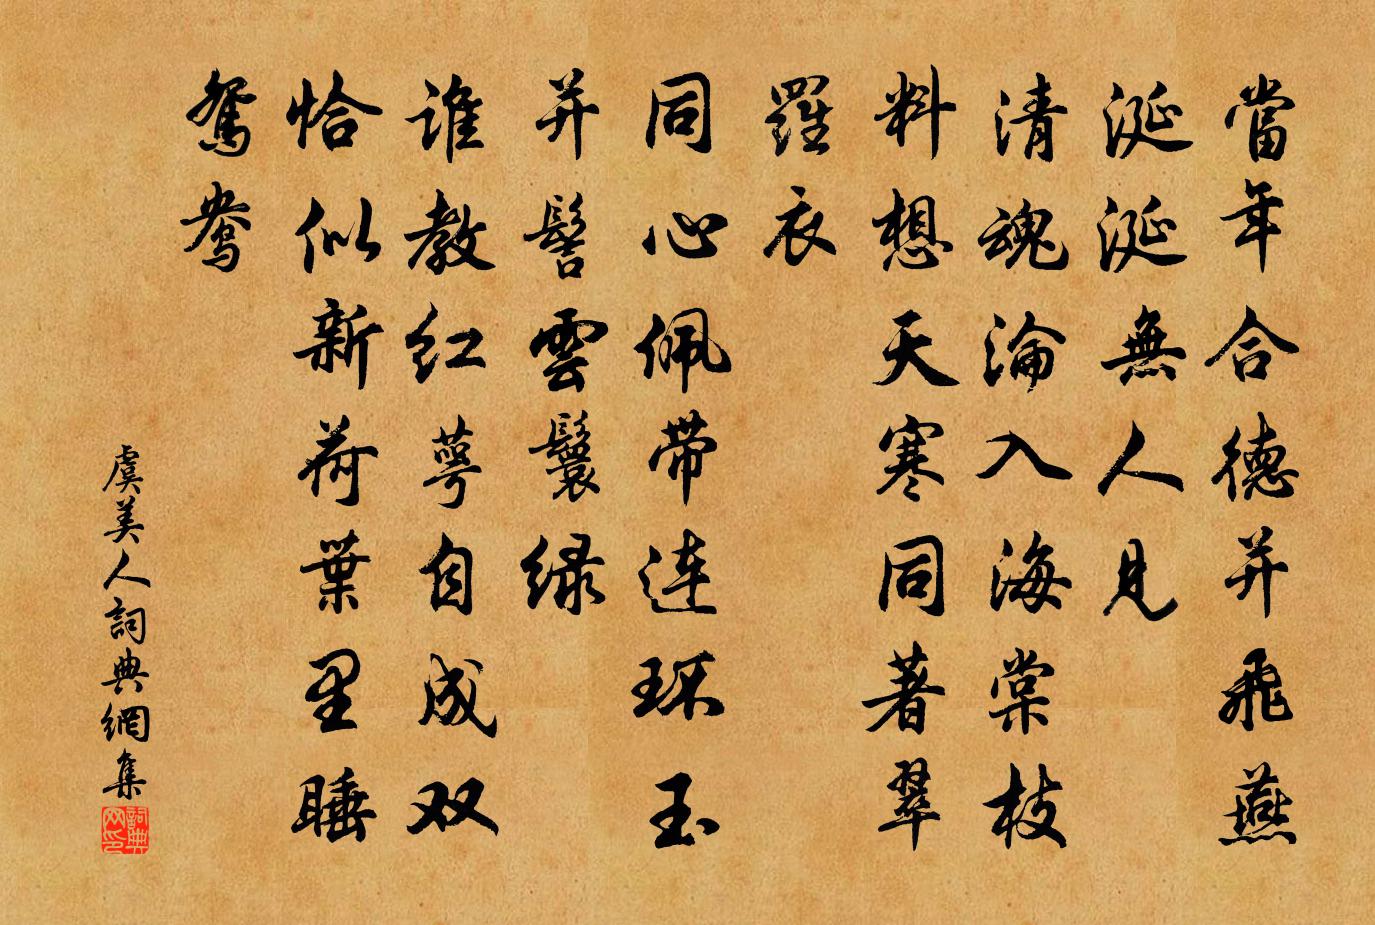 當年合德并飛燕
涎涎無人見
清魂淪入海棠枝
料想天寒同著翠
羅衣
同心佩带連环玉
并髻雲鬟绿
谁教红萼自成双
恰似新荷葉里睡
鸳鸯
虞美人詞典網集
詞典网印